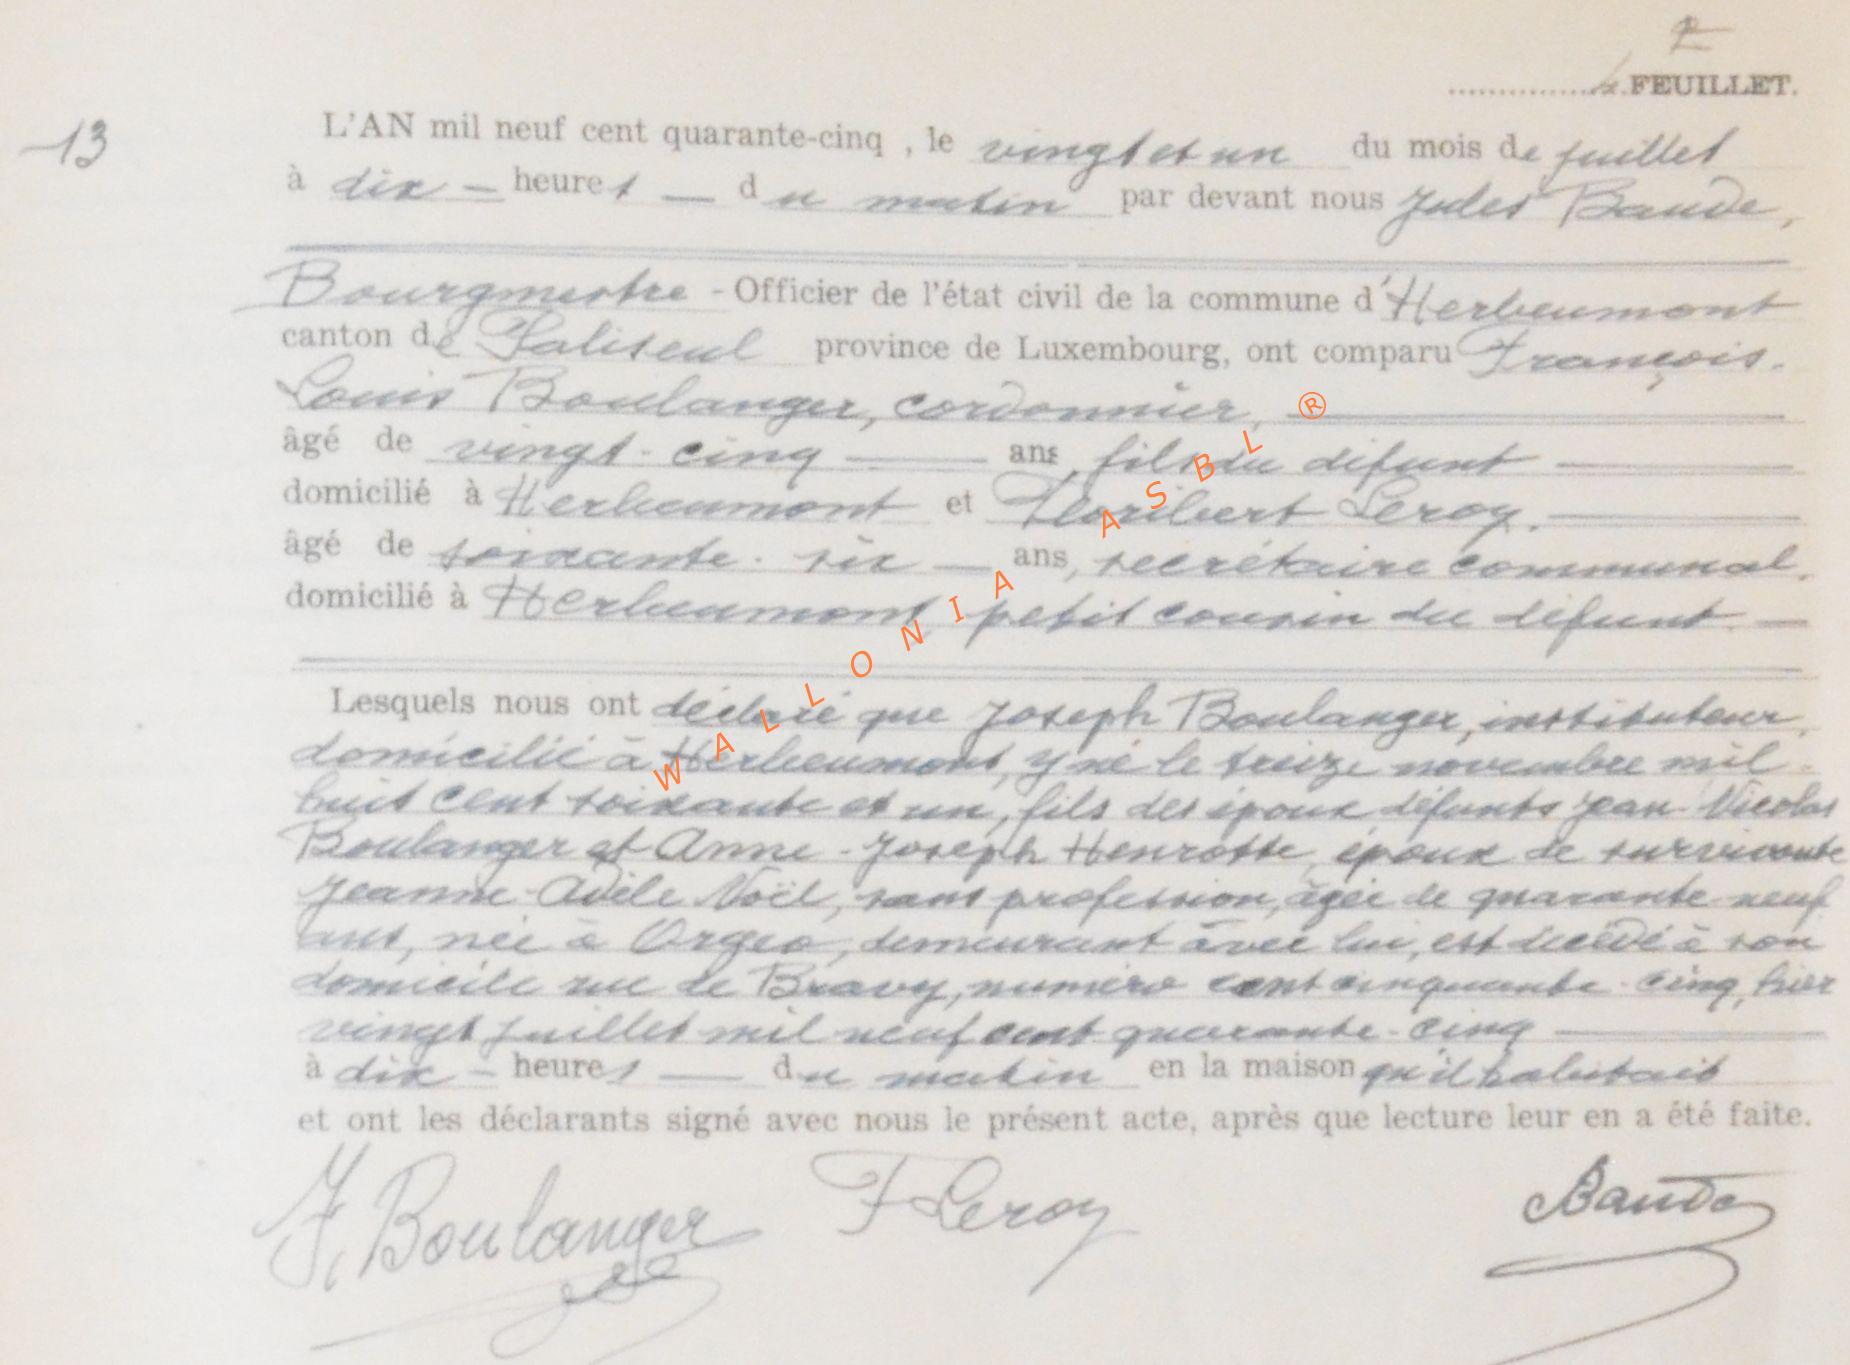 FEUILLET.
13
L'AN mil neuf cent quarante-cinq , le vingt et un du mois de juillet
à dix - heures — du matin par devant nous Jules Baude,
Bourgmestre - Officier de l'état civil de la commune d'Herbeumont
canton de Paliseul province de Luxembourg, ont comparu François-
Louis Boulanger, cordonnier,
âgé de vingt-cinq — ans, fils du défunt —
domicilié à Herbeumont et Floribert Leroy. —
âgé de soixante-six — ans, secrétaire communal,
domicilié à Herbeumont, petit cousin du défunt. —
Lesquels nous ont déclaré que Joseph Boulanger, instituteur,
domicilié à Herbeumont, y né le treize novembre mil-
huit cent soixante et un, fils des époux défunts Jean-Nicolas
Boulanger et Anne-Joseph Henrotte, époux de survivante
Jeanne-Adèle Noël, sans profession, âgée de quarante-neuf
ans, née à Orgeo, demeurant avec lui, est décédé à son
domicile rue de Bravy, numéro cent cinquante-cinq, hier
vingt juillet mil neuf cent quarante-cinq —
à dix - heures — du matin en la maison qu'il habitait
et ont les déclarants signé avec nous le présent acte, après que lecture leur en a été faite.
F. Boulanger F Leroy Baude
WALLONIA ASBL ®